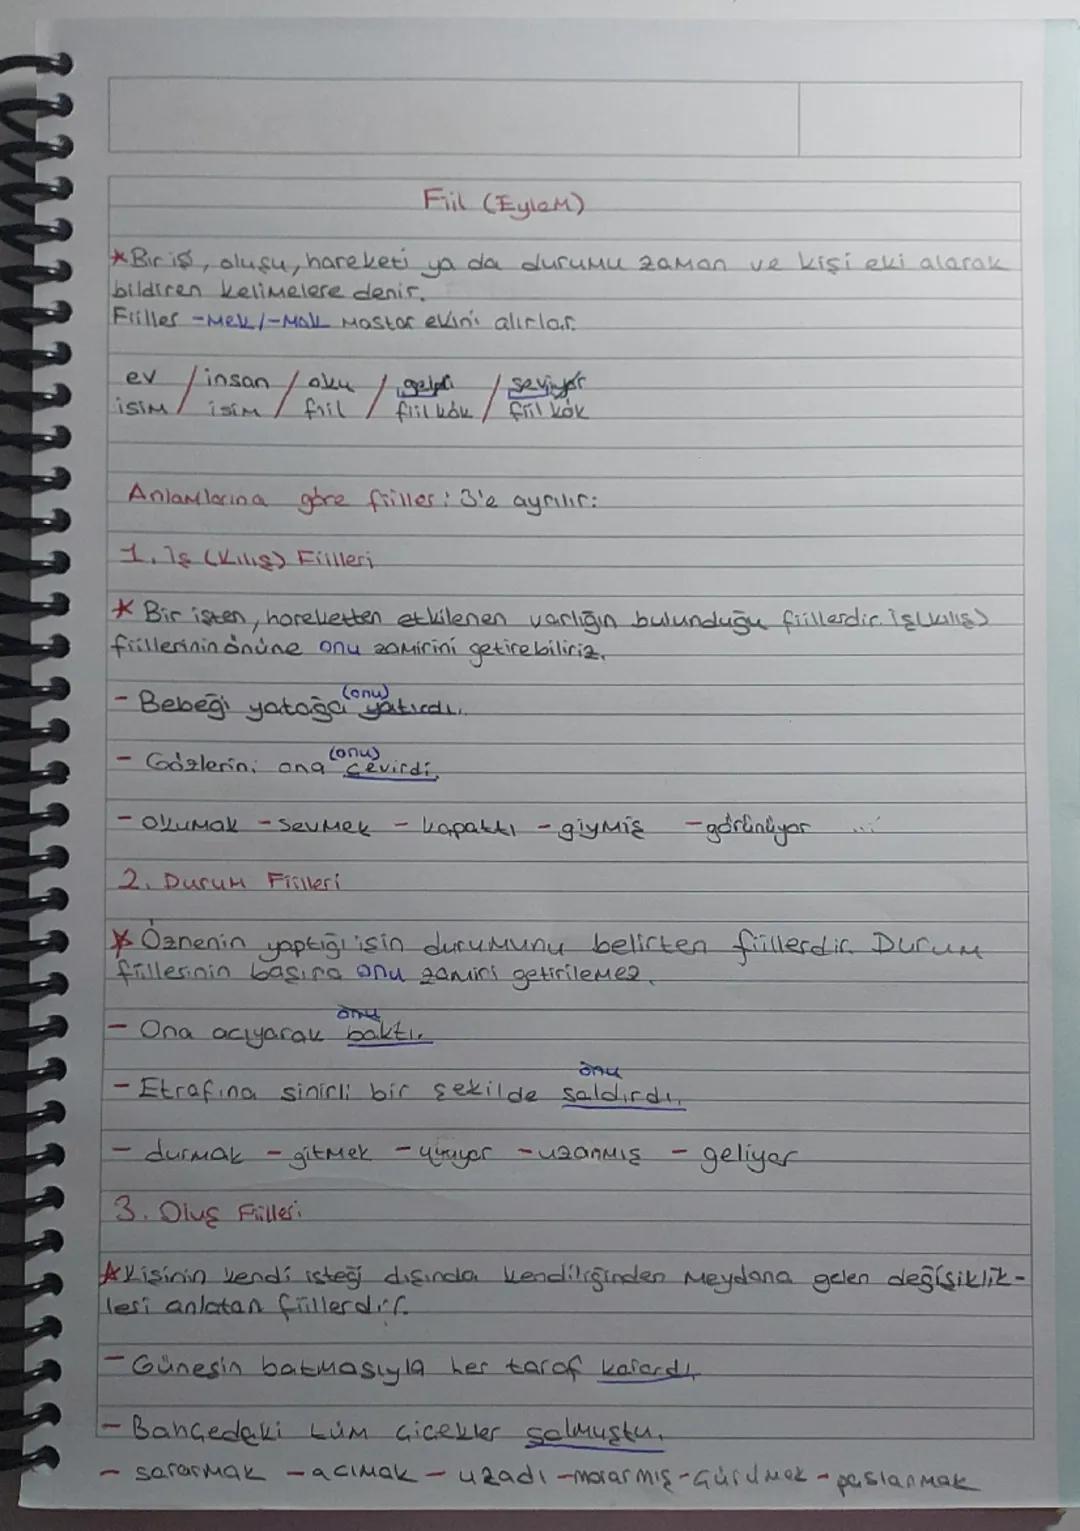 Fiil (Eylem)
*Bir iş, oluşu, hareketi ya da durumu zaman ve kişi eki alarak
bildiren kelimelere denir.
Fiiller -mek/-mak mastar ekini alırlar.
ev / insan / oku / geldi / seviyor
isim / isim / fiil / fiil kök / fiil kök
Anlamlarına göre fiiller: 3'e ayrılır:
1. İş (Kılış) Fiilleri
* Bir işten, hareketten etkilenen varlığın bulunduğu fiillerdir. İş(kılış)
fiillerinin önüne onu zamirini getirebiliriz.
(onu)
- Bebeği yatağa yatırdı.
(onu)
- Gözlerini ona çevirdi.
- okumak - sevmek - kapattı - giymiş - görünüyor ...
2. Durum Fiilleri
* Öznenin yaptığı işin durumunu belirten fiillerdir. Durum
fiillerinin başına onu zamiri getirilemez.
onu
- Ona acıyarak baktı.
onu
- Etrafına sinirli bir şekilde saldırdı.
- durmak - gitmek - - uzanmış - geliyor
3. Oluş Fiilleri
*Kişinin kendi isteği dışında kendiliğinden meydana gelen değişiklik-
leri anlatan fiillerdir.
- Güneşin batmasıyla her taraf karardı.
- Bahçedeki tüm çiçekler solmuştu.
- sararmak - acımak - uzadı - morarmış - çürümek - paslanmak